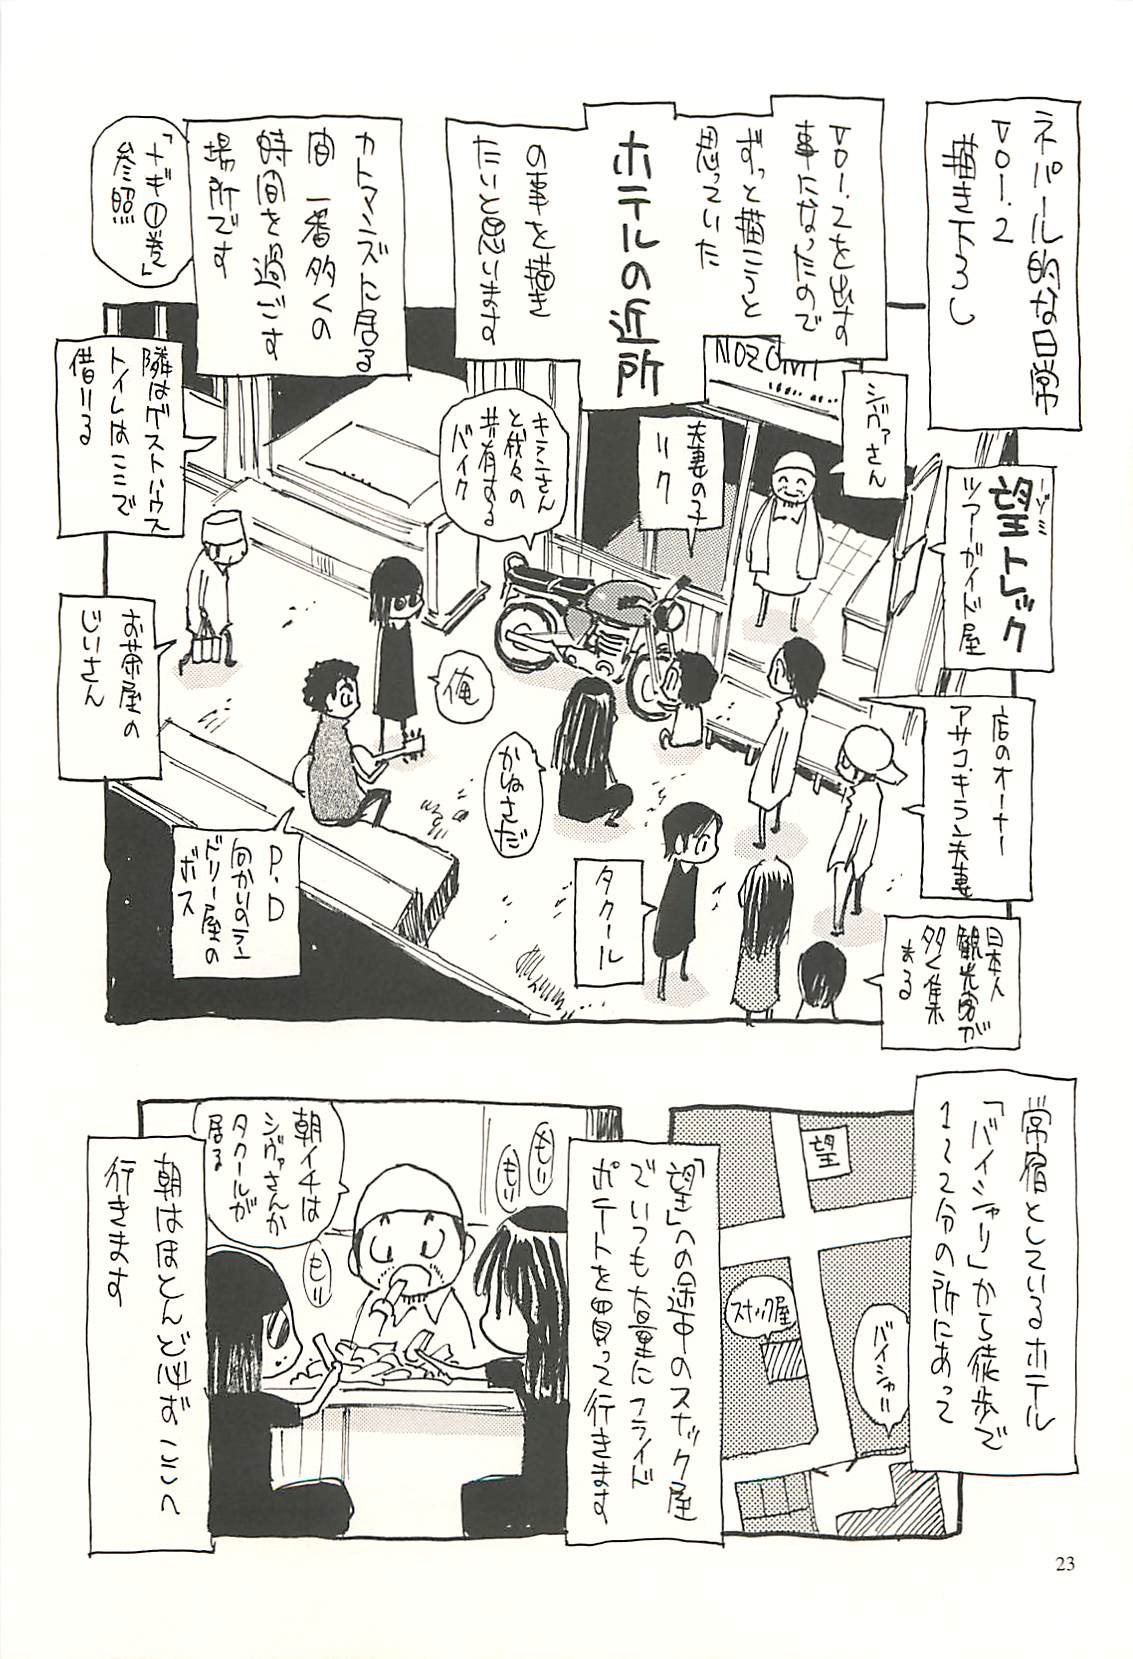 ネパール的な日常
VOl.2
描き下ろし
VOl.2を出す
事になったので
ずっと描こうと
思っていた
ホテルの近所
の事を描き
たいと思います
カトマンズに居る
間 一番多くの
時間を過ごす
場所です
「ナギ①巻」
参照
NOZOMI
シヴァさん
ノゾミ
望トレック
ツアーガイド屋
夫妻の子
リク
キランさん
と我々の
共有する
バイク
隣はゲストハウス
トイレはここで
借りる
お茶屋の
じいさん
俺
かねさだ
店のオーナー
アサコ、キラン夫妻
P.D
向かいのラン
ドリー屋の
ボス
タクール
日本人
観光客が
多く集
まる
常宿としているホテル
「バイシャリ」から徒歩で
1〜2分の所にあって
望
スナック屋
バイシャリ
「望」への途中のスナック屋
でいつも大量にフライド
ポテトを買って行きます
もり
もり
もり
朝イチは
シヴァさんか
タクールが
居る
朝はほとんど必ずここへ
行きます
23